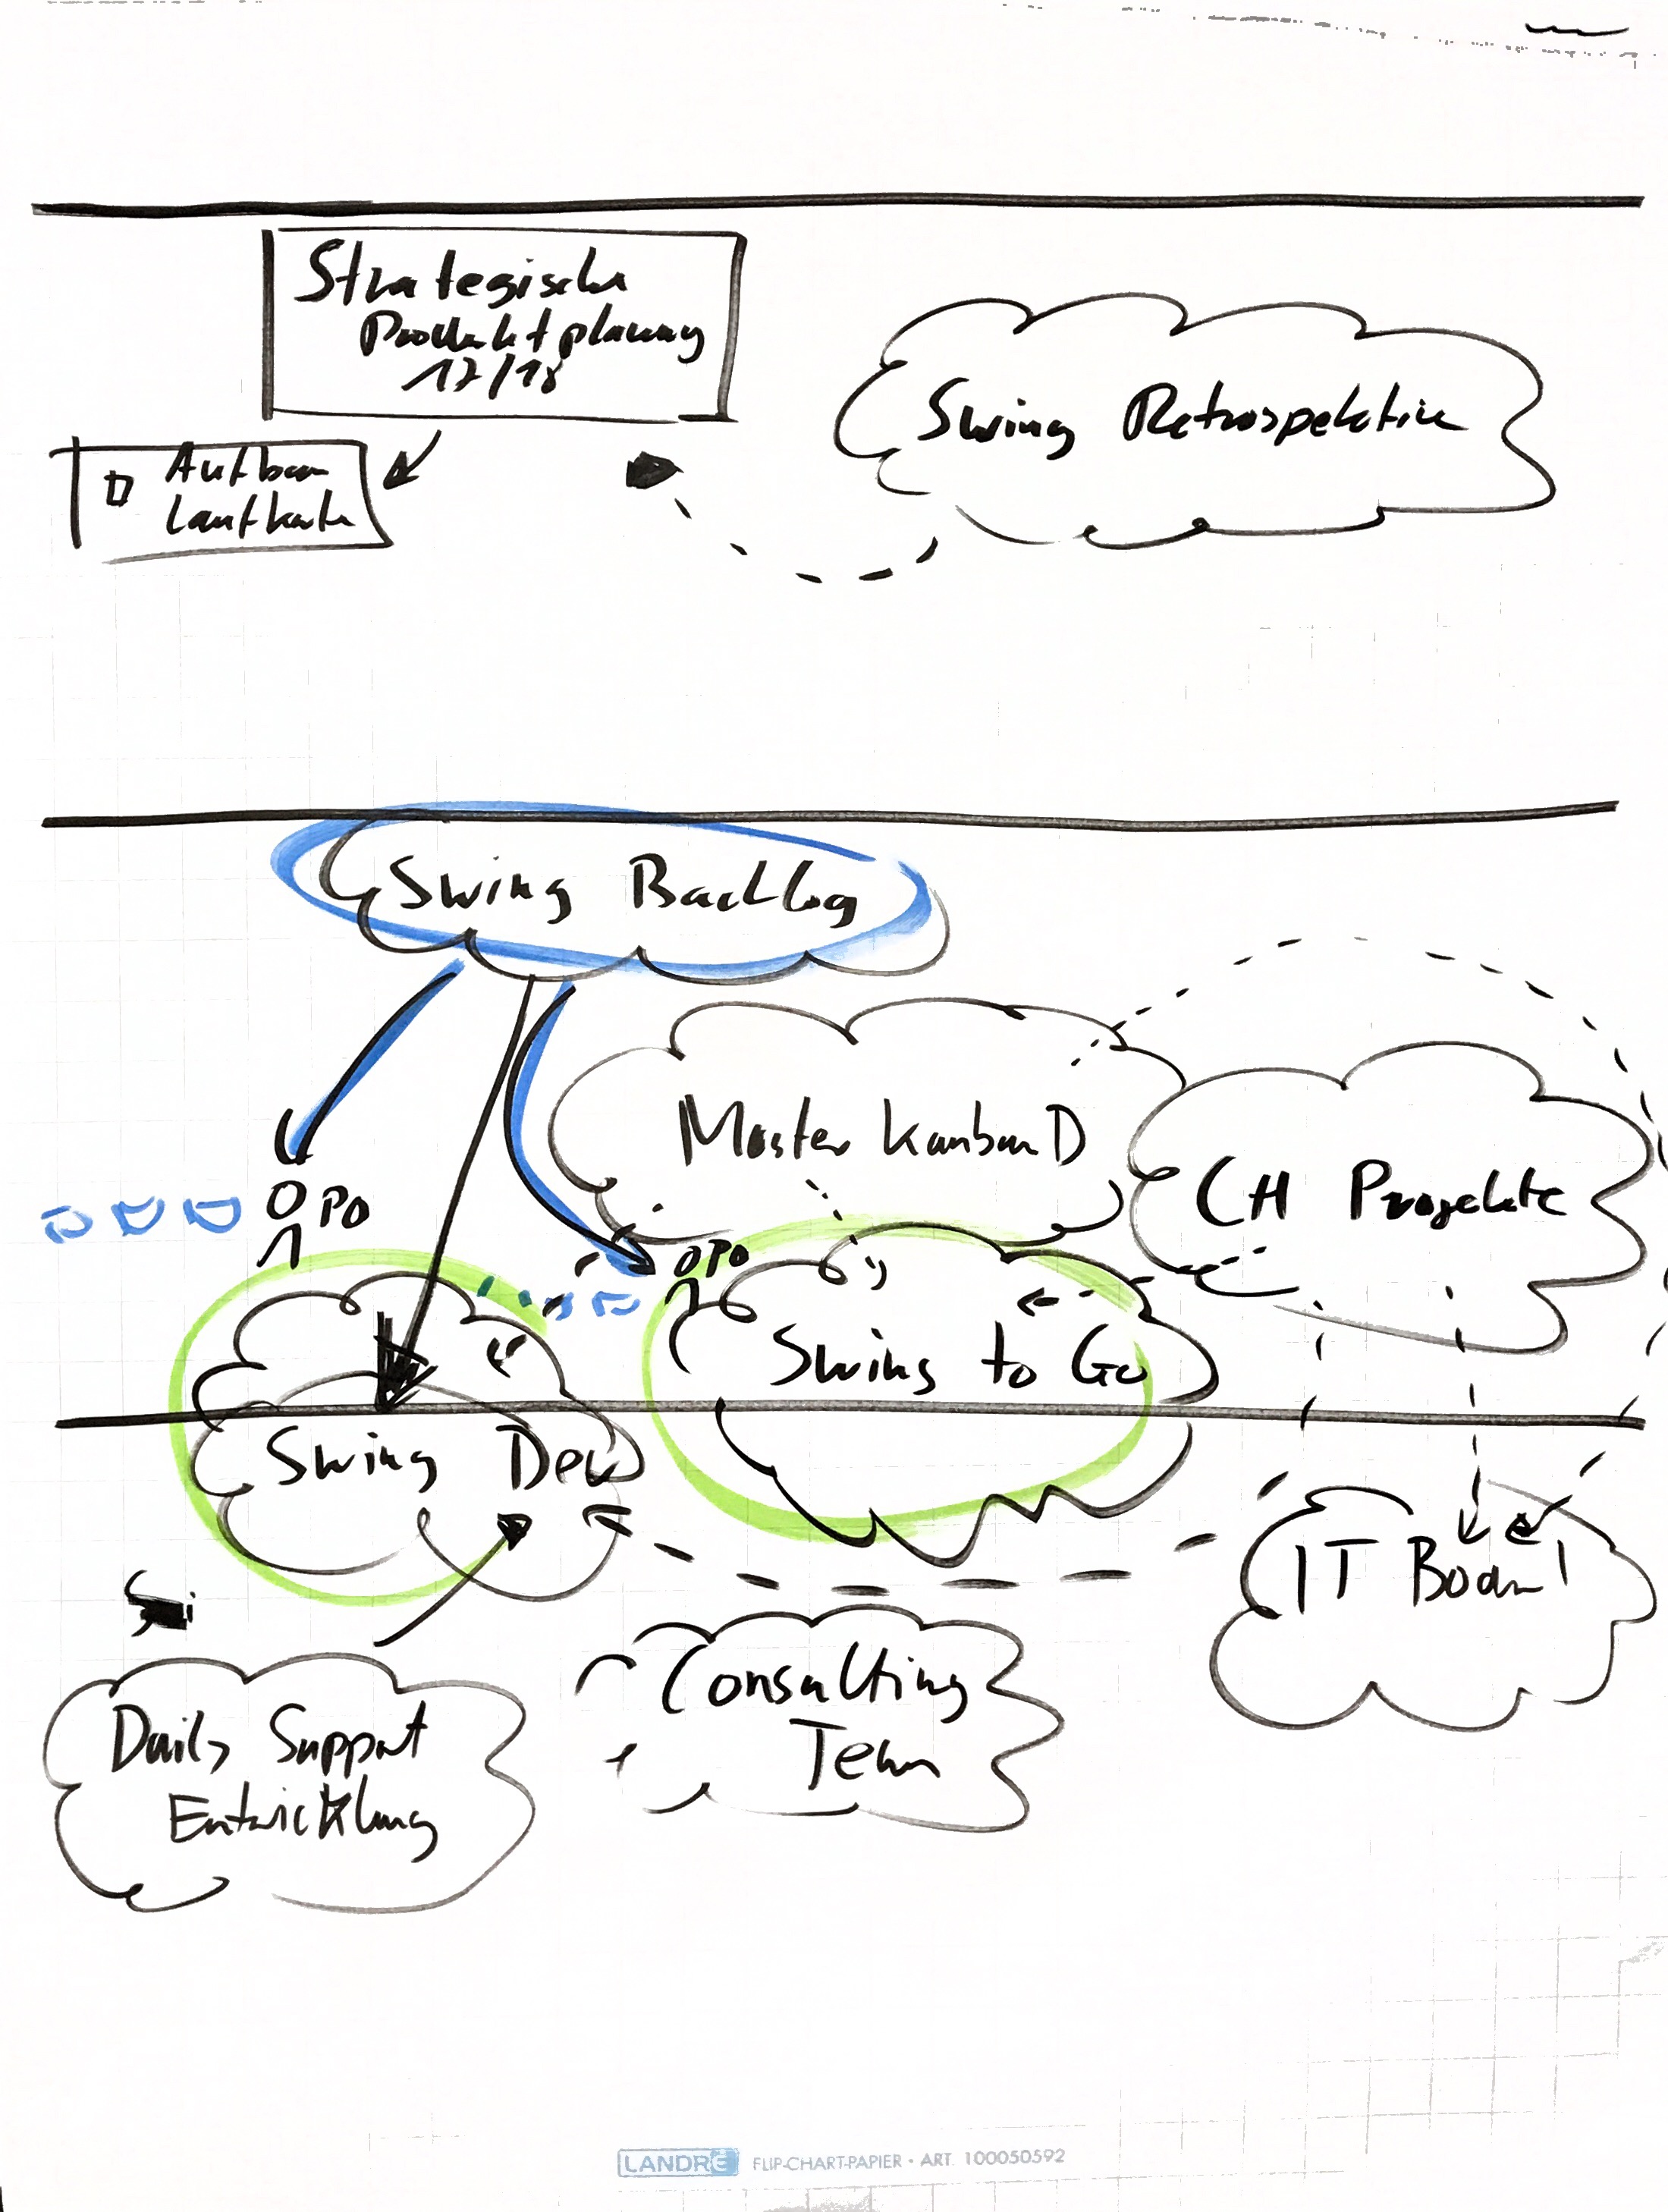 Strategische
Produktplanung
17/18
Swing Retrospektive
Aufbau
Laufkarte
Swing Backlog
Master Kanban D
CH Projekte
PO
PO
Swing to Go
Swing Dev
IT Board
Swi
Consulting
Team
Daily Support
Entwicklung
LANDRÉ FLIP-CHART-PAPIER • ART. 100050592